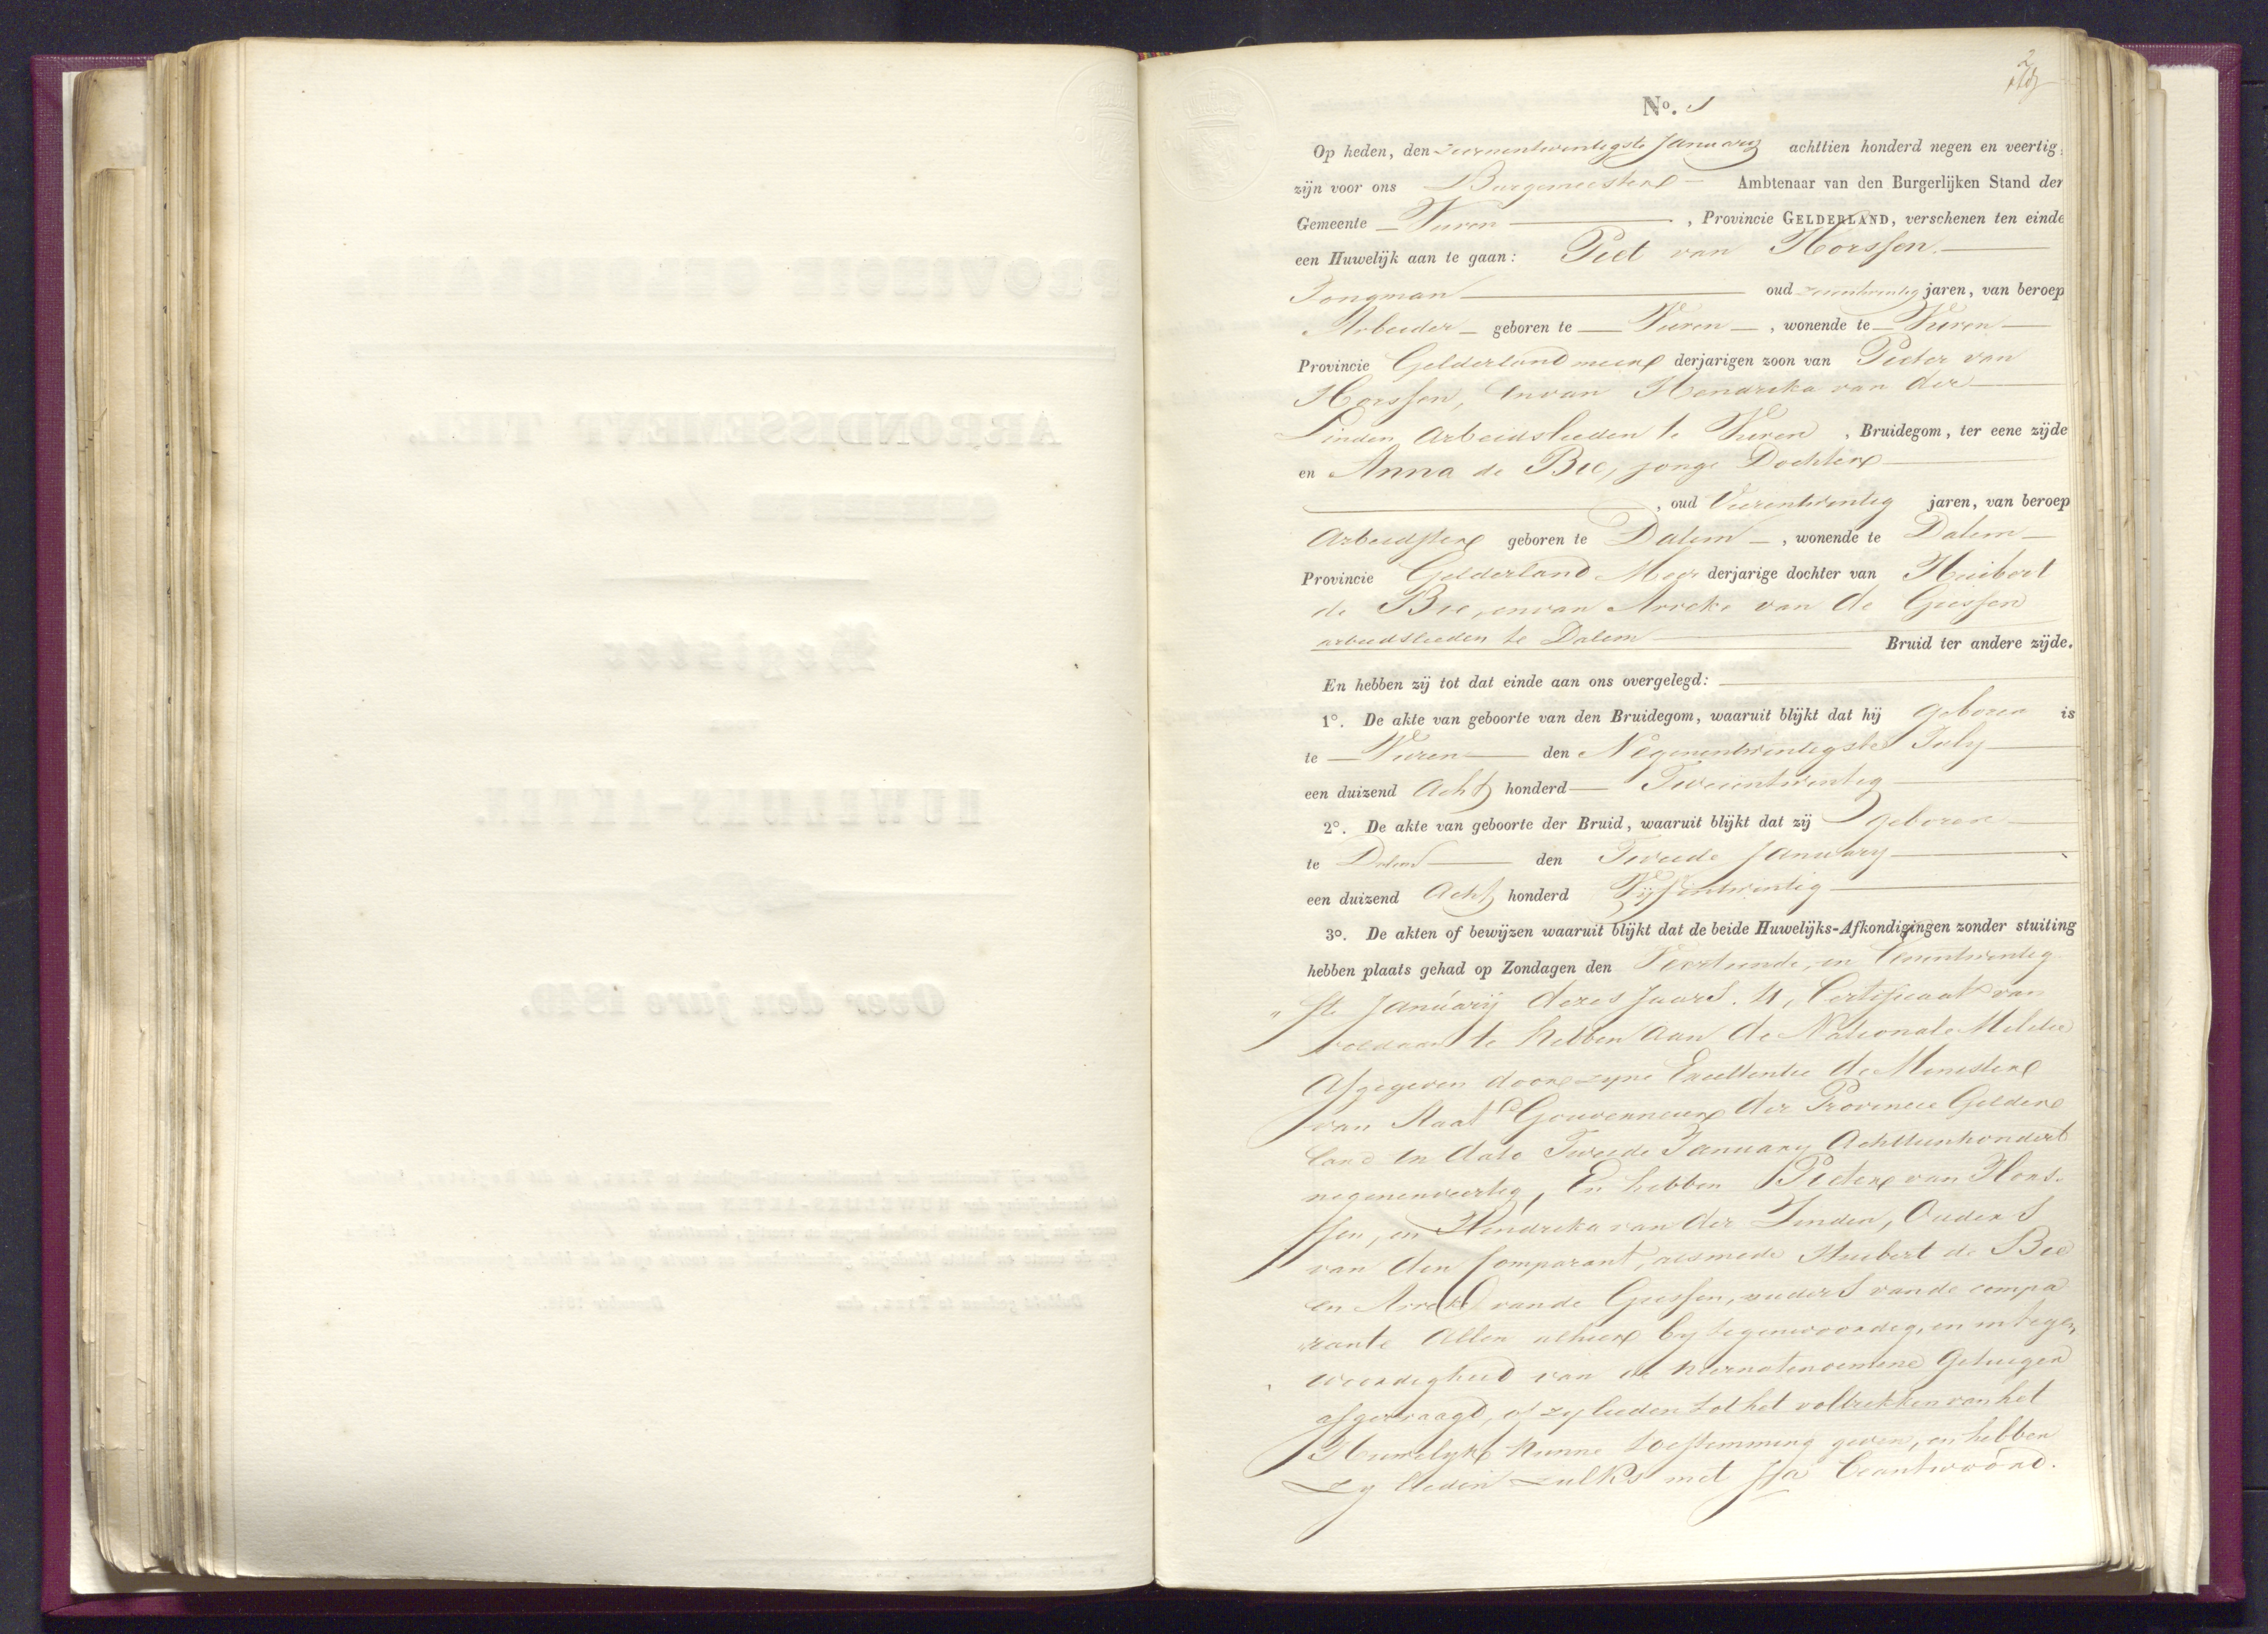 2
No. 1
Op heden, den zevenentwintigste January achttien honderd negen en veertig.
zijn voor ons Burgemeester Ambtenaar van den Burgerlijken Stand der
Gemeente Vuren, Provincie GELDERLAND, verschenen ten einde
een Huwelijk aan te gaan: Piet van Horssen
Jongman oud jaren, van beroep
Arbeider geboren te Vuren, wonende te Vuren
Provincie Gelderland meer derjarigen zoon van Pieter van
Horssen, en van Hendreka van der
Linden Arbeidslieden te Vuren, Bruidegom, ter eene zijde
en Anna de Bie, jonge Dochter
, oud Vierentwentig jaren, van beroep
Arbeidster geboren te Dalem, wonende te Dalem
Provincie Gelderland Meer derjarige dochter van Huibert
de Bie, en van Arreke van de Giessen
arbeidslieden te Dalem Bruid ter andere zijde.
En hebben zij tot dat einde aan ons overgelegd:
1°. De akte van geboorte van den Bruidegom, waaruit blijkt dat hij geboren is
te Vuren den Negenentwintigste July
een duizend Acht honderd Tweeentwentig
2°. De akte van geboorte der Bruid, waaruit blijkt dat zij geboren
te Dalem den Tweede January
een duizend Acht honderd Vijfentwentig
3°. De akten of bewijzen waaruit blijkt dat de beide Huwelijks-Afkondigingen zonder stuiting
hebben plaats gehad op Zondagen den Veertiende, en Eenentwenteg
ste Januarij dezes Jaars. 4, Certificaat van
voldaan te hebben aan de Nationale Melitie
Afgegeven door zyne Excellentie de Menister
van Staat Gouverneur der Provencie Gelder
land en dato Tweede January Achttienhondert
negenenveerteg, En hebben Pieter van Hors-
sen, en Hendreka van der Linden, Ouders
van den Comparant, alsmede Huibert de Bie
en Arreke van de Giessen, ouders van de compa
rante Allen alhier by tegenwoordeg, en in tegen
woordigheid van de hiernatenoemene Getuigen
afgevraagd, of zy lieden tot het voltrekken van het
Huwelyk hunne toestemming geven, en hebben
zy lieden zulks met Ja beantwoord.
PROVINCIE GELDERLAND.
ARRONDISSEMENT TIEL.
GEMEENTE
Register
HUWELIJKS AKTEN.
Over den jare 1849.